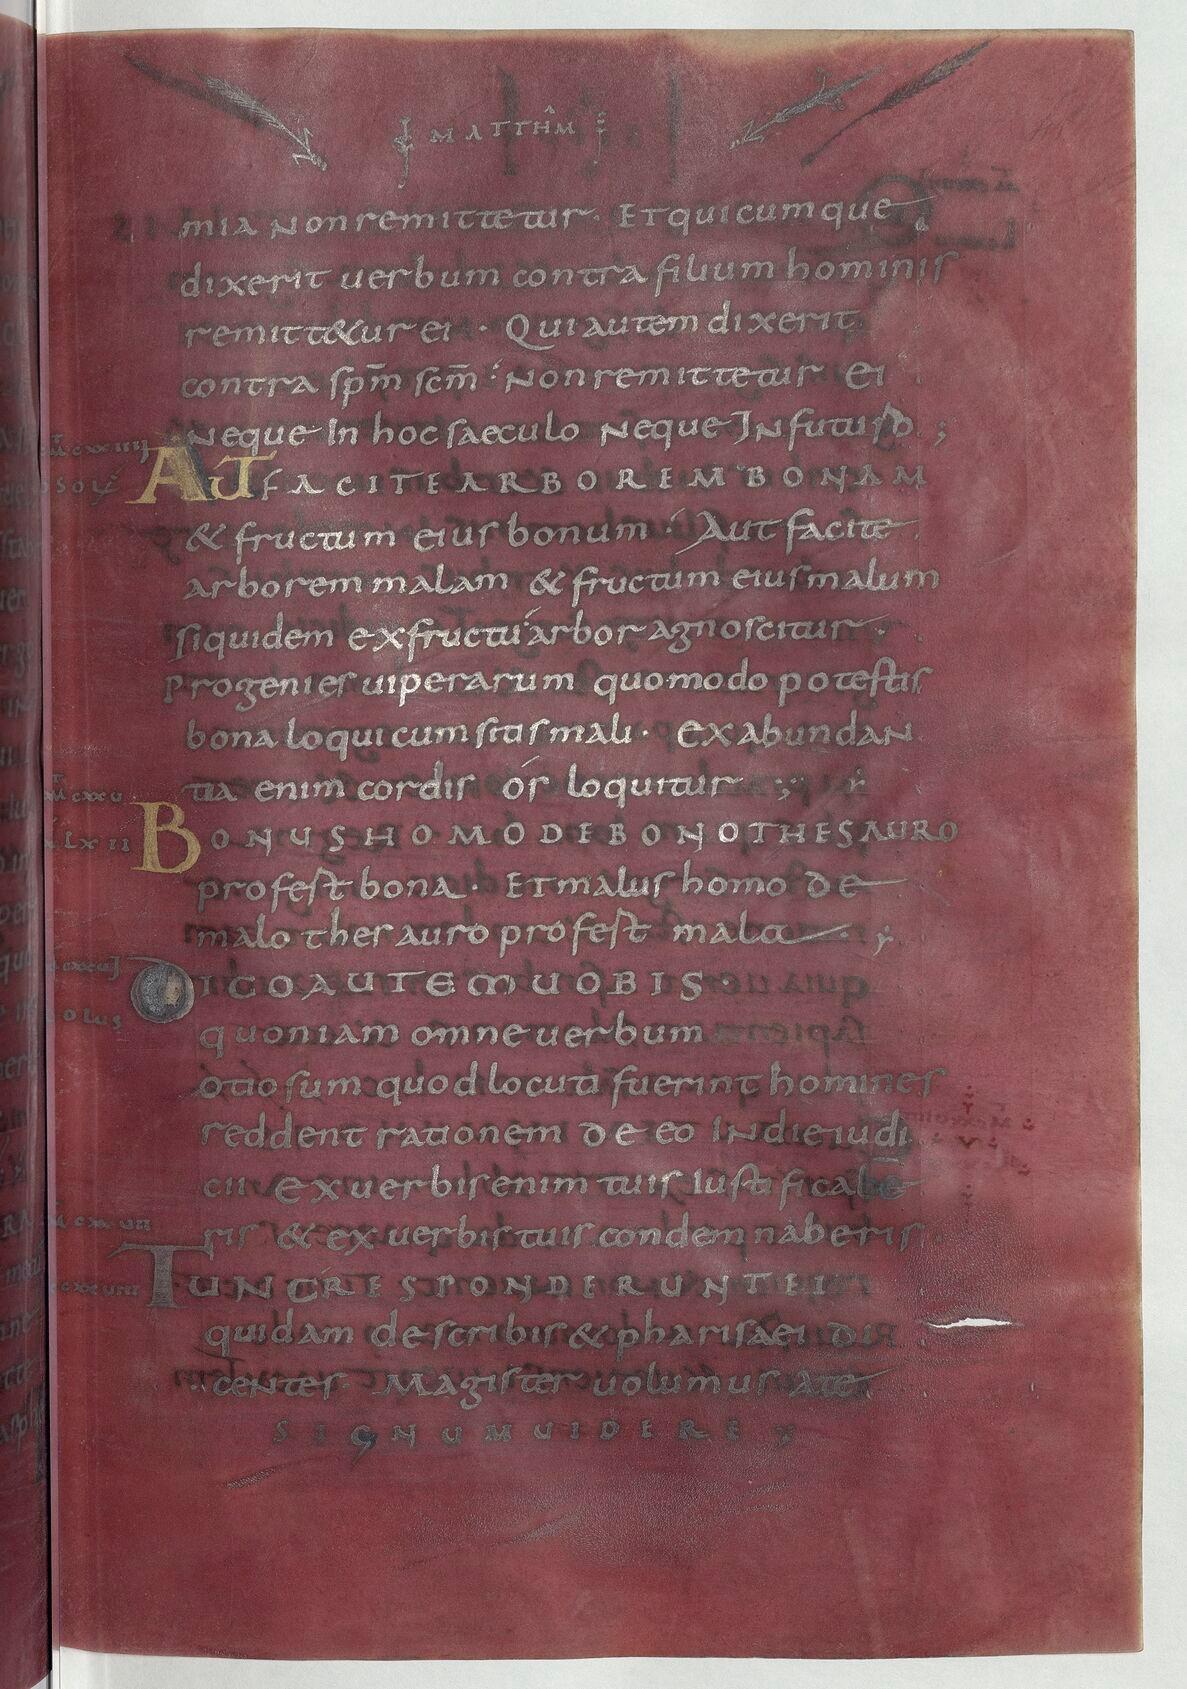 MATTHM
mia Non remittetur. Et quicumque
dixerit uerbum contra filium hominis
remitt&ur ei. Qui autem dixerit
contra spm̄ scm̄: Non remittetur Ei
Neque In hoc saeculo Neque IN futuro;
m̄ cxviiij
AUT FACITE ARBOREM BONAM
& fructum eius bonum. Aut facite
arborem malam & fructum eius malum
siquidem ex fructu arbor agnoscitur.
Progenies uiperarum quomodo potestis
bona loqui cum sitis mali. Ex abundaN
tia enim cordis os loquitur;
m̄ cxxu
Lxii
BONUS HOMO DE BONO THESAURO
profest bona. Et malus homo de
malo thesauro profest mala.
DICO AUTEM UOBIS
quoniam omne uerbum
olus
otiosum quod locuti fuerint homines
reddent rationem de eo IN die iudi
cii Ex uerbis enim tuis Iustificabe
ris & ex uerbis tuis condemnaberis.
TUNC RESPONDERUNT EI
quidam de scribis & pharisaei di
centes. Magister uolumus ate
SIGNUM UIDERE